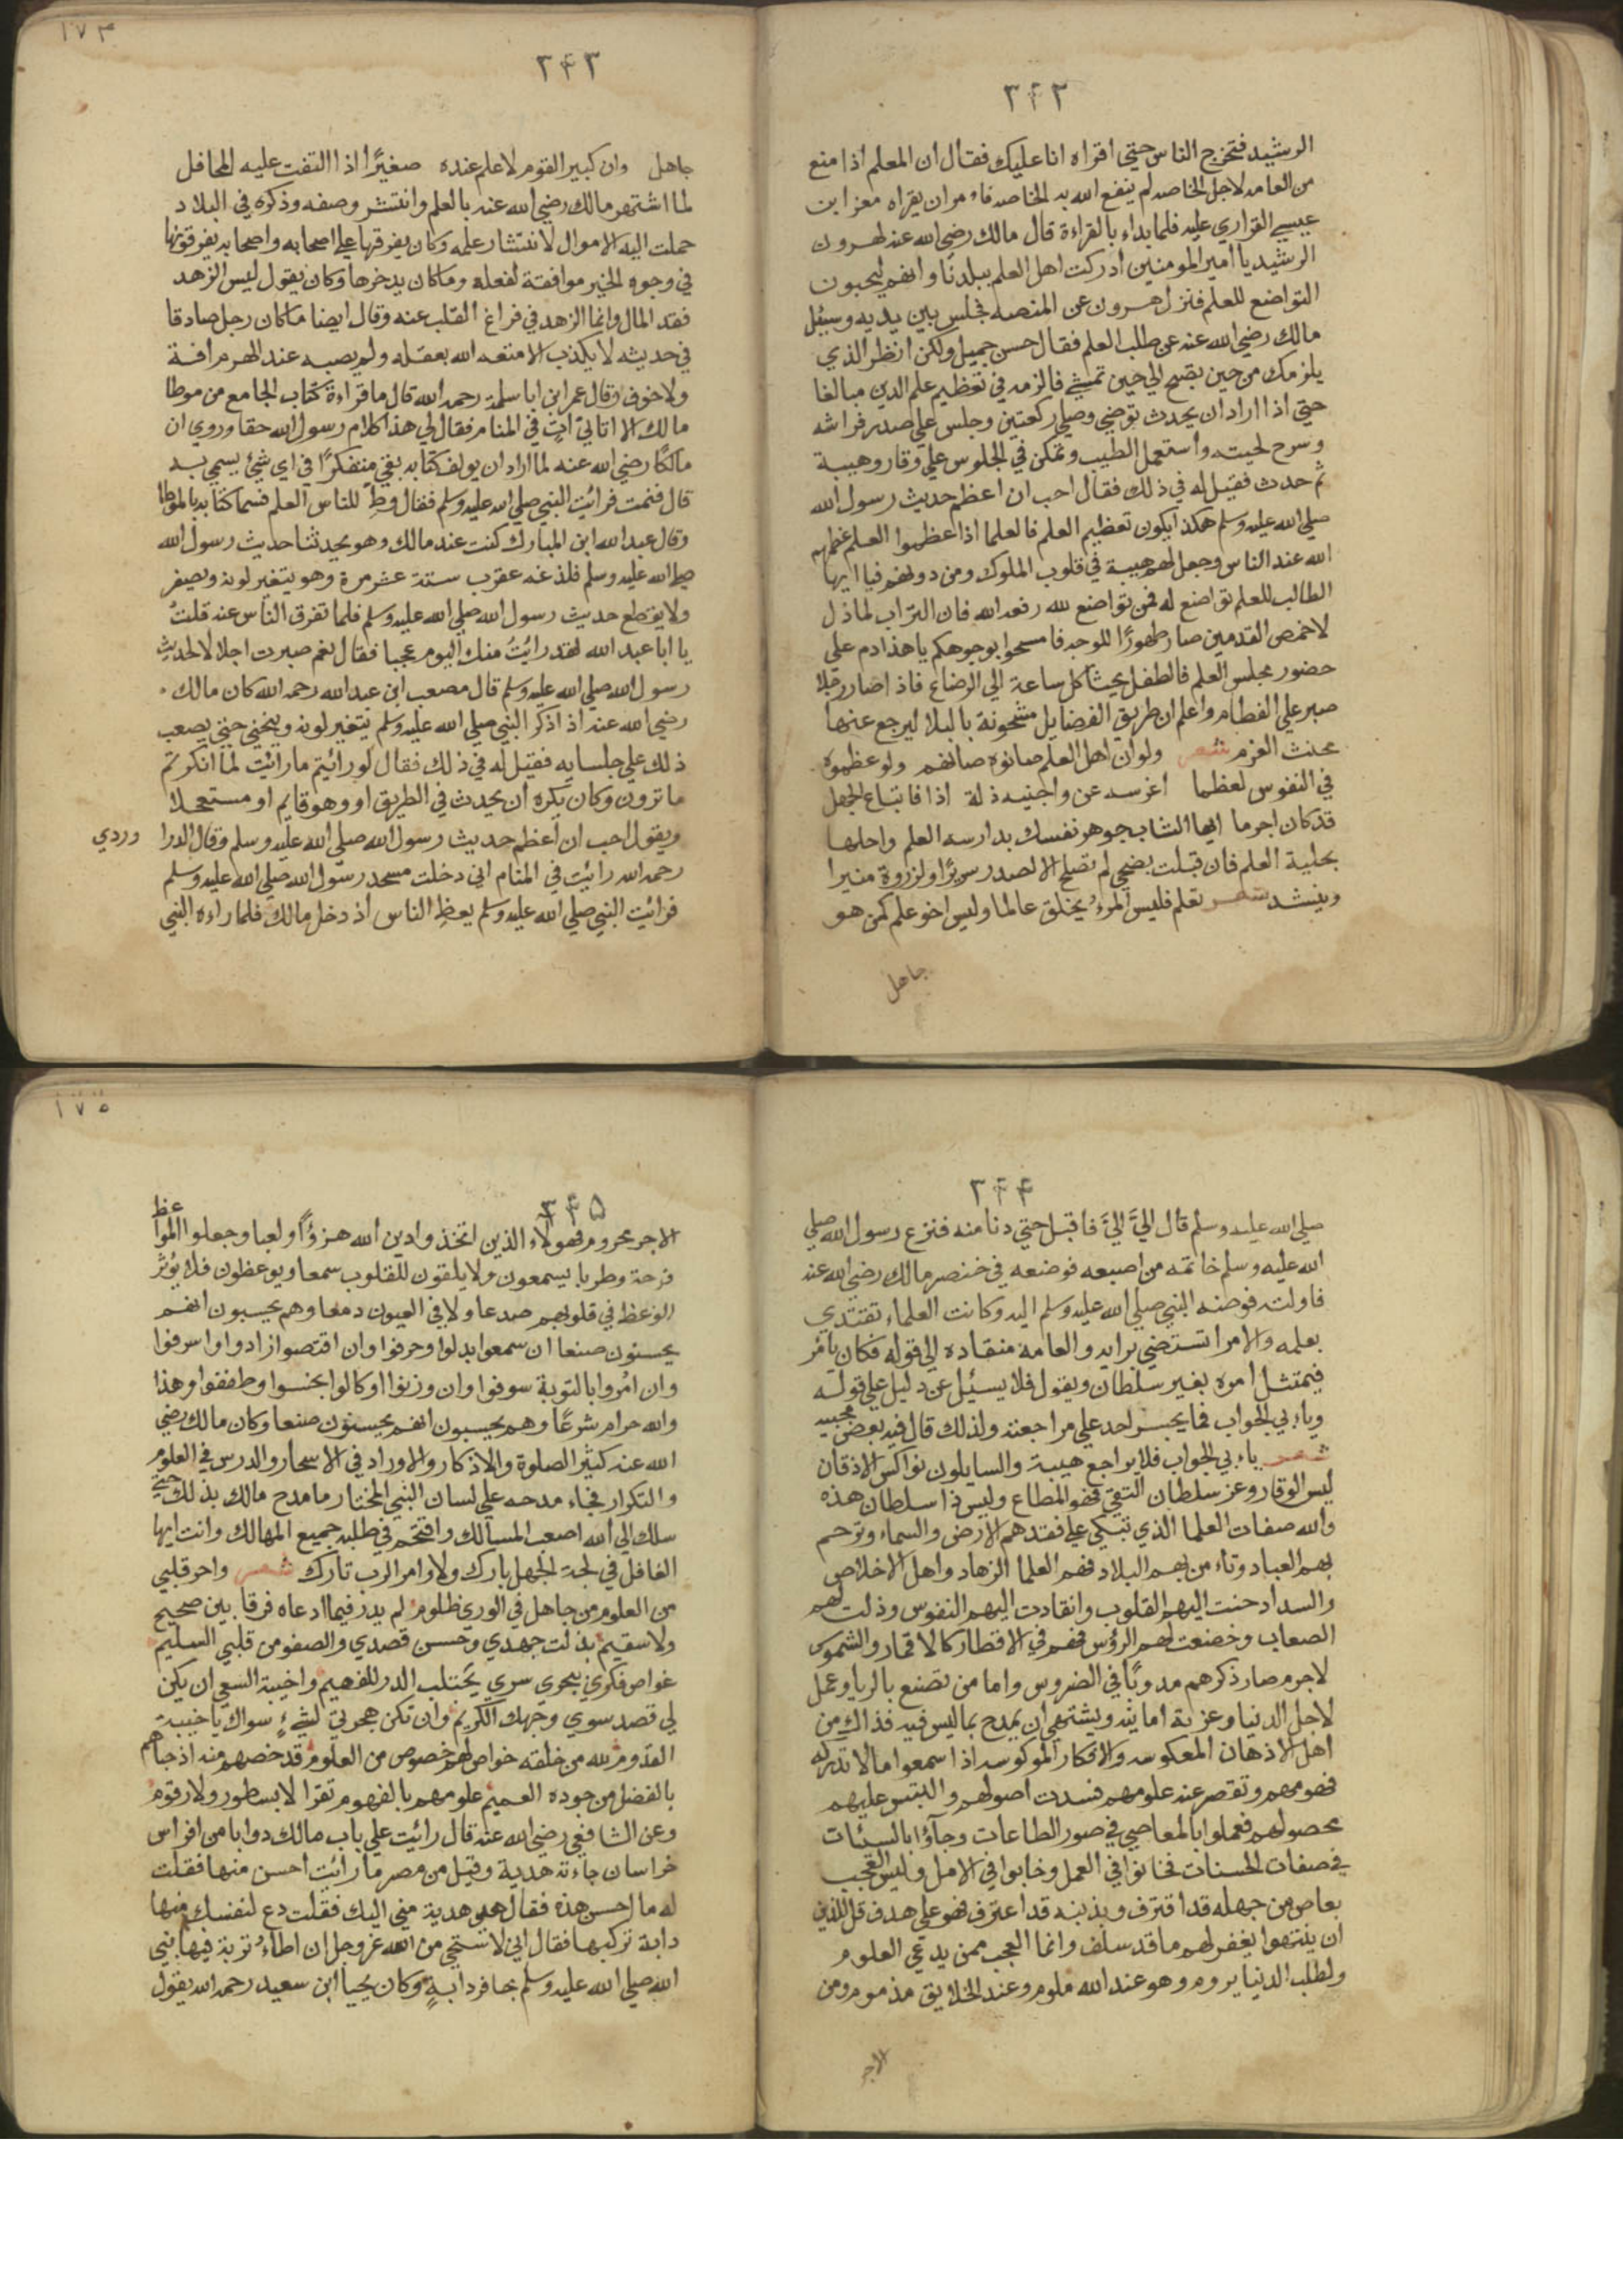 ٣٤٢
الرشيد فتخرج الناس حتي اقراه انا عليك فقال ان المعلم اذا منع
من العامه لاجل الخاصه لم ينفع الله به الخاصه فاءمر ان يقراه معز ابن
عيسي القزاري عليه فلما بداء بالقراءة قال مالك رضي الله عنه لهرون
الرشيد يا امير المومنين ادركت اهل العلم ببلدنا وانهم ليحبون
التواضع للعلم فنزل هرون عن المنصه فجلس بين يديه وسيئل
مالك رضي الله عنه عن طلب العلم فقال حسن جميل ولكن انظر الذي
يلزمك من حين تصبح الي حين تمشي فالزمه في تعظيم علم الدين مبالغا
حتي اذا اراد ان يحدث توضي وصلي ركعتين وجلس علي صدر فراشه
وسرح لحيته واستعمل الطيب وتمكن في الجلوس علي وقار وهيبة
ثم حدث فقيل له في ذلك فقال احب ان اعظم حديث رسول الله
صلي الله عليه وسلم هكذا يكون تعظيم العلم فالعلما اذا عظموا العلم عظمهم
الله عند الناس وجعل لهم هيبة في قلوب الملوك ومن دونهم فيا ايها
الطالب للعلم تواضع له فمن تواضع لله رفعه الله فان التراب لما ذل
لاخمص القدمين صار طهورًا للوجه فامسحوا بوجوهكم يا هذا دم علي
حضور مجلس العلم فالطفل يحثا كل ساعة الي الرضاع فاذا صار رجلا
صبر علي الفطام واعلم ان طريق الفضايل مشحونة بالبلا ليرجع عنها
مخنث العزم شعر ولو ان اهل العلم صانوه صانهم ولو عظموه
في النفوس لعظما اغرسه عن واجنيه ذلة اذا فاتباع الجهل
قد كان اجرما ايها الشاب جوهر نفسك بدارسه العلم واحلها
بحلية العلم فان قبلت نصحي لم تصلح الا لصدر سريرًا ولزروة منيرا
وينشد شعر تعلم فليس المرء يخلق عالما وليس اخو علم كمن هو
جاهل
١٧٣
٣٤٣
جاهل وان كبير القوم لا علم عنده صغيرًا اذا التفت عليه المحافل
لما اشتهر مالك رضي الله عنه بالعلم وانتشر وصفه وذكره في البلاد
حملت اليه الاموال لانتشار علمه وكان يفرقها علي اصحابه واصحابه يفرقونها
في وجوه الخير موافقة لفعله وماكان يدخرها وكان يقول ليس الزهد
فقد المال وانما الزهد في فراغ القلب عنه وقال ايضا ماكان رجل صادقا
في حديثه لا يكذب الا متعه الله بعقله ولم يصبه عند الهرم افة
ولا خوف وقال عمر ابن ابا سلمة رحمه الله قال ما قراءة كتاب الجامع من موطا
مالك الا اتاني اتٍ في المنام فقال لي هذا كلام رسول الله حقا وروي ان
مالكًا رضي الله عنه لما اراد ان يولف كتابه بقي متفكرًا في اي شئ يسمي به
قال فنمت فرائيت النبي صلي الله عليه وسلم فقال وطّ للناس العلم فسما كتابه بالموطا
وقال عبد الله ابن المبارك كنت عند مالك وهو يحدثنا حديث رسول الله
صلي الله عليه وسلم فلذغته عقرب ستة عشر مرة وهو يتغير لونه ويصفر
ولا يقطع حديث رسول الله صلي الله عليه وسلم فلما تفرق الناس عنه قلتُ
يا ابا عبد الله لقد رائيتُ منك اليوم عجبا فقال نعم صبرت اجلالا لحديث
رسول الله صلي الله عليه وسلم قال مصعب ابن عبد الله رحمه الله كان مالك
رضي الله عنه اذ اذكر النبي صلي الله عليه وسلم يتغير لونه وينحني حتي يصعب
ذلك علي جلسايه فقيل له في ذلك فقال لو رائيتم ما رائيت لما انكرتم
ما ترون وكان يكره ان يحدث في الطريق او وهو قايم او مستعجلا
ويقول احب ان اعظم حديث رسول الله صلي الله عليه وسلم وقال الدرا وردي
رحمه الله رائيت في المنام اني دخلت مسجد رسول الله صلي الله عليه وسلم
فرائيت النبي صلي الله عليه وسلم يعظ الناس اذ دخل مالك فلما راءه النبي
٣٤٤
صلي الله عليه وسلم قال اليَّ اليَّ فاقبل حتي دنا منه فنزع رسول الله صلي
الله عليه وسلم خاتمه من اصبعه فوضعه في خنصر مالك رضي الله عنه
فاولته فوضه النبي صلي الله عليه وسلم اليه وكانت العلماء تقتدي
بعلمه والامرا تستضي برايه والعامه منقاده الي قوله فكان يامر
فيمتثل امره بغير سلطان ويقول فلا يسئل عن دليل علي قوله
وياءبي الجواب فما يجسر احد علي مراجعته ولذلك قال فيه بعض محبيه
شعر ياءبي الجواب فلا يراجع هيبة والسايلون نواكس الاذقان
ليس الوقار وعز سلطان التقي فهو المطاع وليس ذا سلطان هذه
والله صفات العلما الذي تبكي علي فقدهم الارض والسماء وترحم
بهم العباد وتاءمن بهم البلاد فهم العلما الزهاد واهل الاخلاص
والسداد حنت اليهم القلوب وانقادت اليهم النفوس وذلت لهم
الصعاب وخضعت لهم الرؤس فهم في الاقطار كالاقمار والشموس
لاجرم صار ذكرهم مدونًا في الضروس واما من تصنع بالريا وعمل
لاجل الدنيا وعزبة امانيه ويشتهي ان يمدح بما ليس فيه فذاك من
اهل الاذهان المعكوسه والافكار الموكوسه اذا سمعوا مالا تدركه
فهومهم وتقصر عنه علومهم فسدت اصولهم والتبس عليهم
محصولهم فعملوا بالمعاصي في صور الطاعات وجآؤا بالسيئات
في صفات الحسنات فخانوا في العمل وخابوا في الامل وليس العجب
بعاص من جهله قد اقترف وبذنبه قد اعترف فهو علي هدف قل للذين
ان ينتهوا يغفر لهم ما قد سلف وانما العجب ممن يدعي العلوم
ولطلب الدنيا يروم وهو عند الله ملوم وعند الخلايق مذموم ومن
الاجر
١٧٥
٣٤٥
الاجر محروم فهولاء الذين اتخذوا دين الله هزؤًا ولعبا وجعلوا المواعظ
فرحة وطربا يسمعون ولا يلقون للقلوب سمعا ويوعظون فلا يُوثر
الوعظ في قلوبهم صدعا ولا في العيون دمعا وهم يحسبون انهم
يحسنون صنعا ان سمعوا بدلوا وحرفوا وان اقتصوا زادوا واسرفوا
وان امُروا بالتوبة سوفوا وان وزنوا او كالوا بخسوا وطففوا وهذا
والله حرام شرعًا وهم يحسبون انهم يحسنون صنعا وكان مالك رضي
الله عنه كثير الصلوة والاذكار والاوراد في الاسحار والدرس في العلوم
والتكرار فجاء مدحه علي لسان النبي المختار ما مدح مالك بذلك حتي
سلك الي الله اصعب المسالك واقتحم في طلبه جميع المهالك وانت ايها
الغافل في لجة الجهل بارك ولاوامر الرب تارك شعر واحر قلبي
من العلوم من جاهل في الوري ظلوم لم يدر فيما ادعاه فرقا بين صحيح
ولا سقيم بذلت جهدي وحسن قصدي والصفو من قلبي السليم
غواص فكري ببحري سري يجتلب الدر للفهيم واخيبة السعي ان يكن
لي قصد سوي وجهك الكريم وان تكن هجرتي لشيءٍ سواك يا خيبة
القدوم لله من خلقه خواص لهم خصوص من العلوم قد خصهم منه اذ حباهم
بالفضل من جوده العميم علومهم بالفهوم تقرا لا بسطور ولا رقوم
وعن الشافعي رضي الله عنه قال رائيت علي باب مالك دوابا من افراس
خراسان جاءته هدية وقيل من مصر ما رائيت احسن منها فقلت
له ما احسن هذه فقال هي هدية مني اليك فقلت دع لنفسك منها
دابة تركبها فقال اني لاستحي من الله عز وجل ان اطاء تربة فيها نبي
الله صلي الله عليه وسلم بحافر دابةٍ وكان يحيا ابن سعيد رحمه الله يقول